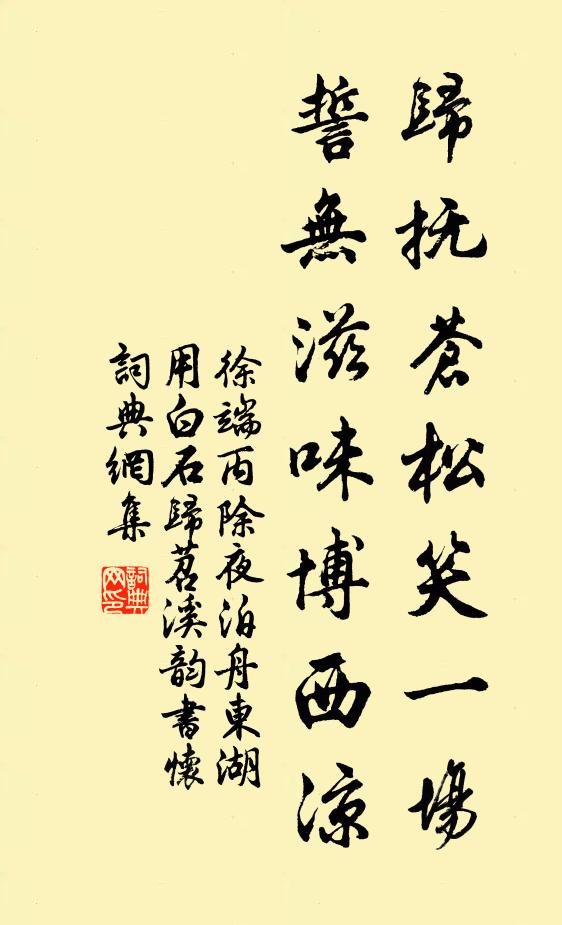 歸抚蒼松笑一場
誓無滋味博西涼
徐端丙除夜泊舟東湖
用白石歸苕溪韵書懷
詞典網集
詞典网印